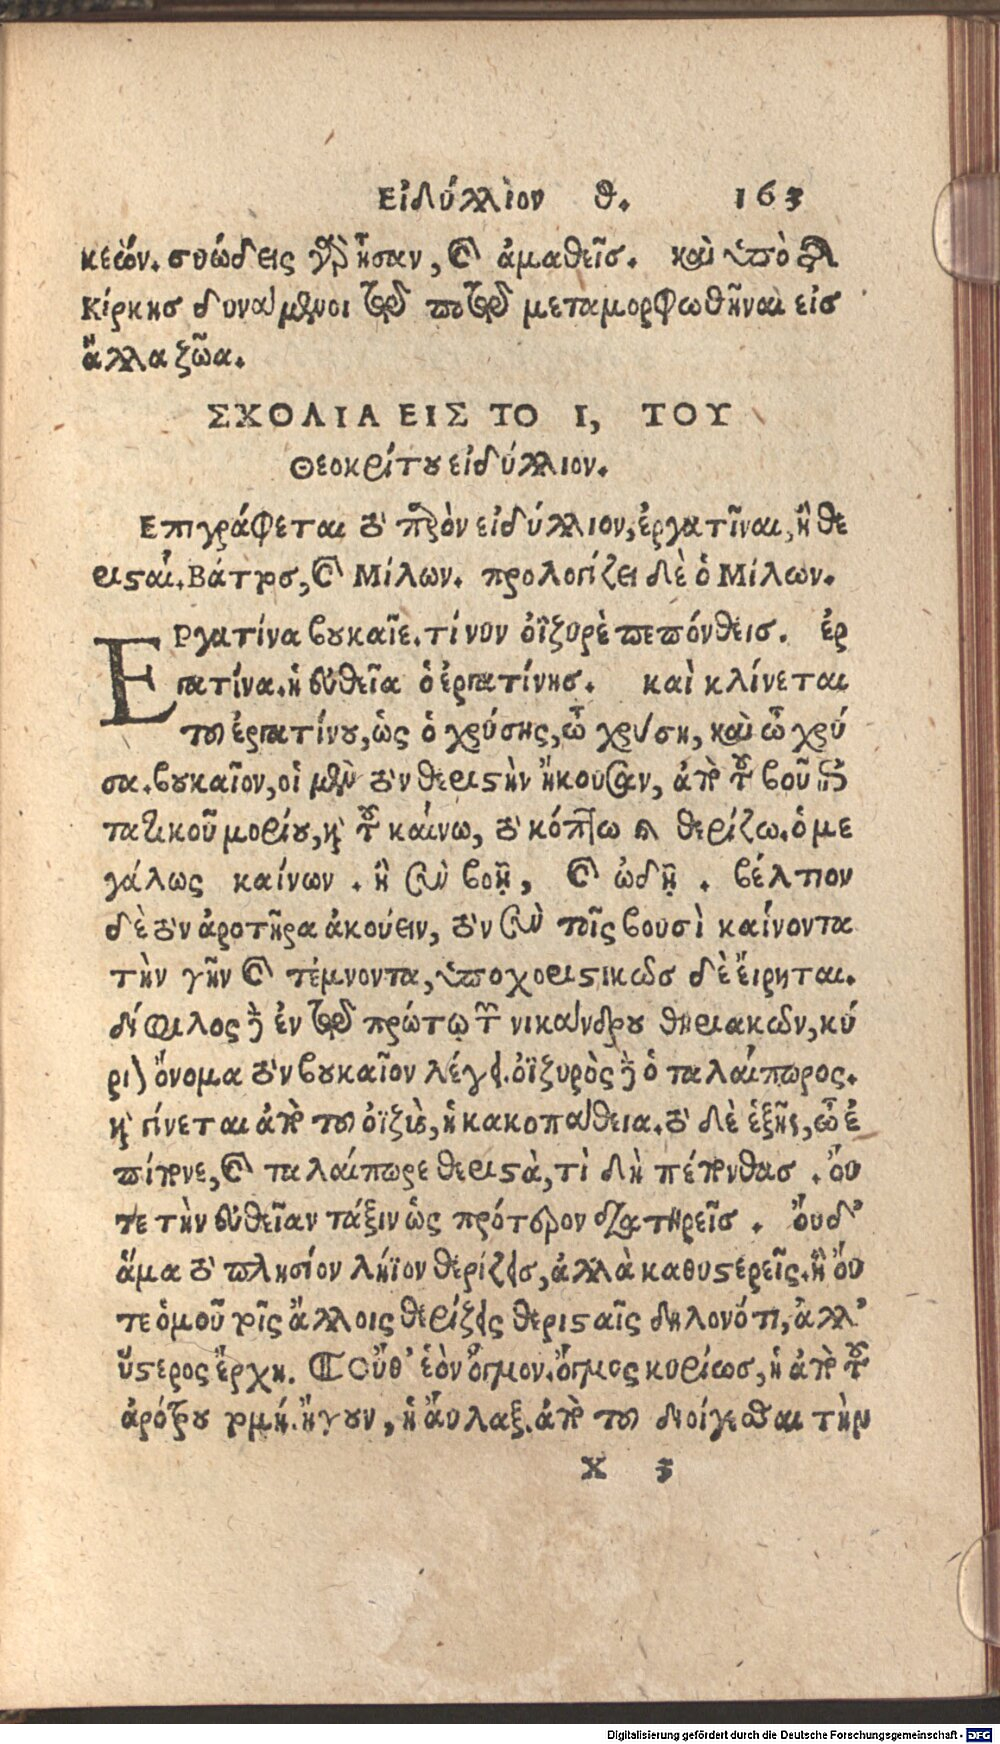 Εἰδύλλιον θ. 163
κεὼν. συώδεις γὰρ ἦσαν, καὶ ἀμαθεῖς. καὶ ὑπὸ τῆς
Κίρκης δυνάμενοι τῷ ποτῷ μεταμορφωθῆναι εἰς
ἄλλα ζῶα.
ΣΧΟΛΙΑ ΕΙΣ ΤΟ Ι, ΤΟΥ
Θεοκρίτου εἰδύλλιον.
Επιγράφεται τὸ παρὸν εἰδύλλιον, ἐργατῖναι, ἢ θε
ρισταί. Βάττος, καὶ Μίλων. προλογίζει δὲ ὁ Μίλων.
ΕΡγατίνα βουκαῖε. τί νυν ὀϊζυρὲ πεπόνθεις. ἐρ
γατίνα. ἡ εὐθεῖα ὁ ἐργατίνης. καὶ κλίνεται
τοῦ ἐργατίνου, ὡς ὁ χρύσης, ὦ χρύση, καὶ ὦ χρύ
σα. βουκαῖον, οἱ μὲν τὸν θεριστὴν ἤκουσαν, ἀπὸ τοῦ βοῦ ἐπι
τατικοῦ μορίου, καὶ τοῦ καίνω, τὸ κόπτω καὶ θερίζω. ὁ με
γάλως καίνων. ἢ σὺν βοῇ, καὶ ὠδῇ. βέλτιον
δὲ τὸν ἀροτῆρα ἀκούειν, τὸν σὺν τοῖς βουσὶ καίνοντα
τὴν γῆν καὶ τέμνοντα, ὑποχοριστικῶς δὲ εἴρηται.
δίφιλος δὲ ἐν τῷ πρώτῳ τῶν νικάνδρου θηριακῶν, κύ
ριον ὄνομα τὸν βουκαῖον λέγει. ὀϊζυρὸς δὲ ὁ ταλαίπωρος.
καὶ γίνεται ἀπὸ τοῦ ὀϊζὺς, ἡ κακοπάθεια. τὸ δὲ ἑξῆς, ὦ ἐ
πίπονε, καὶ ταλαίπωρε θεριστὰ, τί δὴ πέπονθας. οὔ
τε τὴν εὐθεῖαν τάξιν ὡς πρότερον διατηρεῖς. οὔδ'
ἅμα τὸ πλησίον λήϊον θερίζεις, ἀλλὰ καθυστερεῖς. ἢ οὔ
τε ὁμοῦ τοῖς ἄλλοις θερίζεις θερισταῖς δηλονότι, ἀλλ'
ὕστερος ἔρχῃ. ¶ Οὔθ' ἑὸν ὄγμον. ὄγμος κυρίως, ἡ ἀπὸ τοῦ
ἀρότρου τομή. ἤγουν, ἡ αὖλαξ. ἀπὸ τοῦ διοίγεσθαι τὴν
X 3
Digitalisierung gefördert durch die Deutsche Forschungsgemeinschaft - DFG